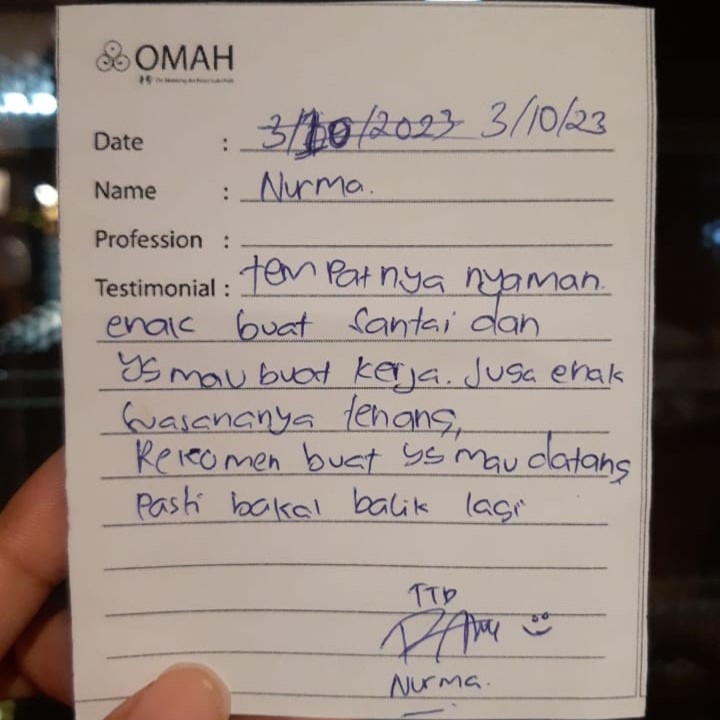 OMAH
Date : 3/10/2023 3/10/23
Name : Nurma.
Profession :
Testimonial : tempatnya nyaman.
enak buat santai dan
yg mau buat kerja. Juga enak
suasananya tenang,
Rekomen buat yg mau datang
Pasti bakal balik lagi
TTD
Nurma.